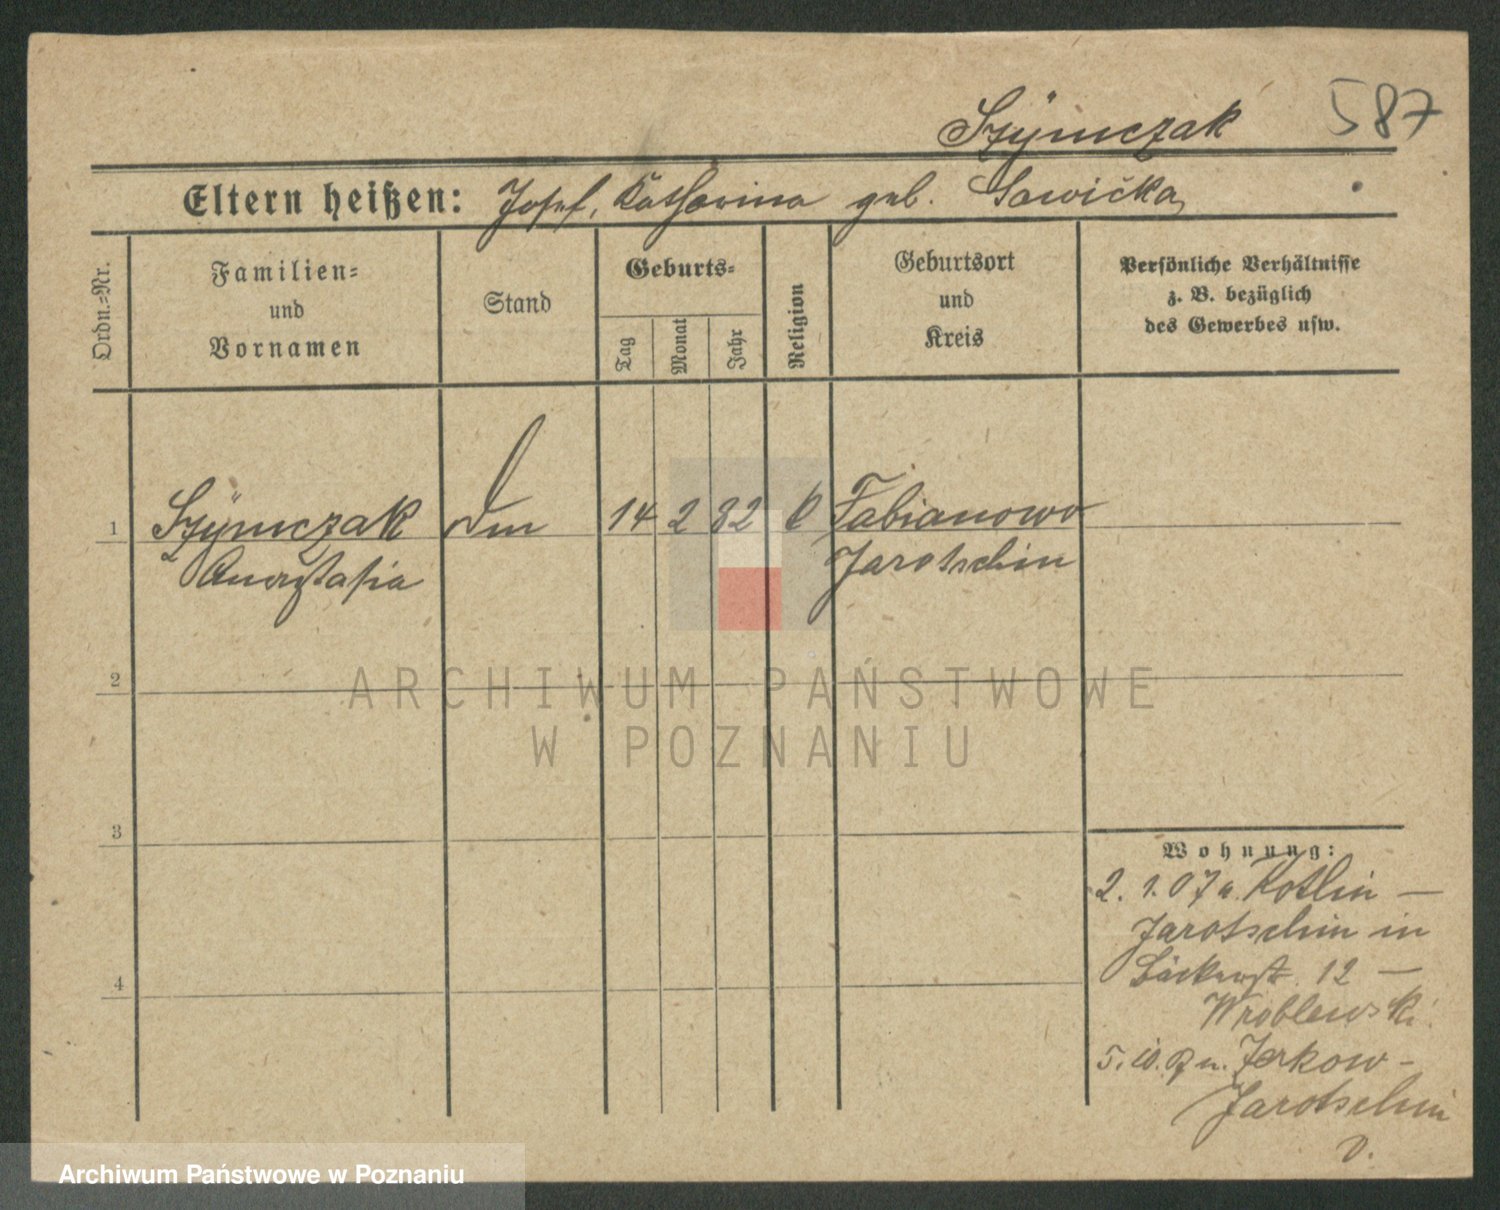 Szymczak 587
Eltern heißen: Josef, Katharina geb. Sawicka
Ordn.-Nr.
Familien-
und
Vornamen
Stand
Geburts-
Tag
Monat
Jahr
Religion
Geburtsort
und
Kreis
Persönliche Verhältnisse
z. B. bezüglich
des Gewerbes usw.
1 Szymczak 14 2 82 k Fabianowo
Anastasia Jarotschin
2
3
4
Wohnung:
2. 1. 07 a. Kotlin —
Jarotschin in
Bäckerst. 12 —
Wroblewski
n. Zerkow -
Jarotschin
v.
ARCHIWUM PAŃSTWOWE
W POZNANIU
Archiwum Państwowe w Poznaniu